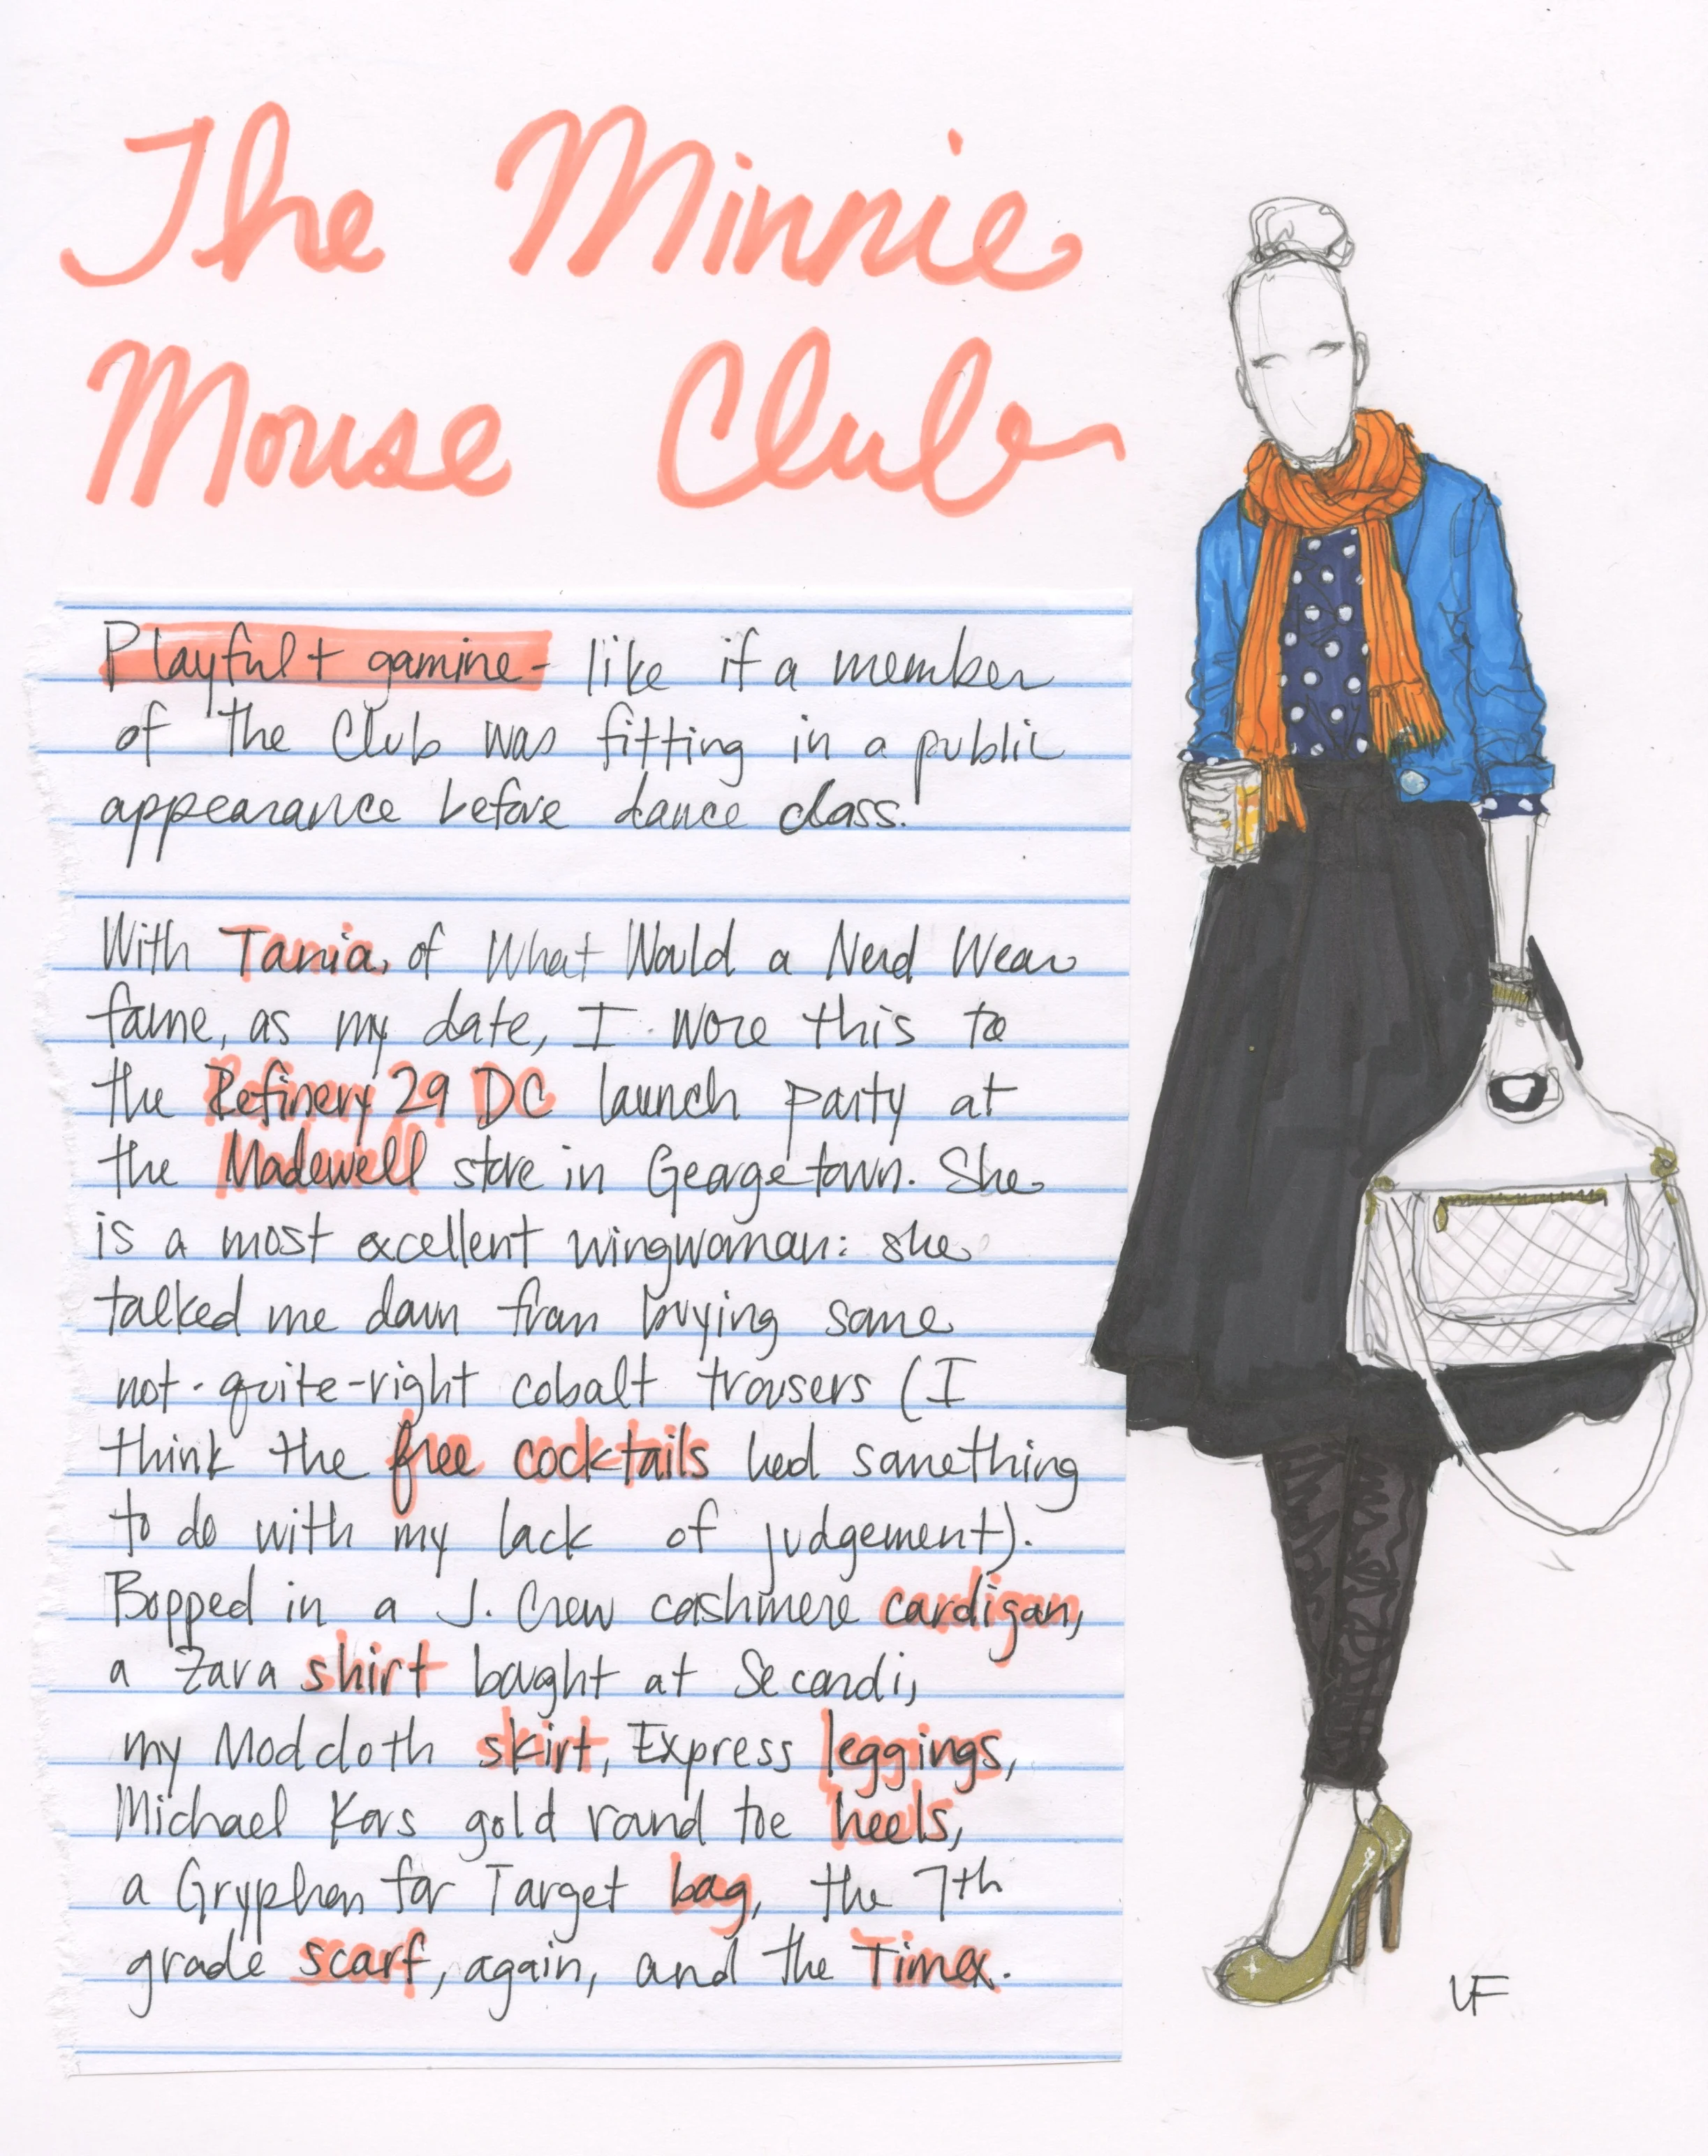 The Minnie
Mouse Club
Playful + gamine - like if a member
of the Club was fitting in a public
appearance before dance class.
With Tania, of What Would a Nerd Wear
fame, as my date, I wore this to
the Refinery 29 DC launch party at
the Madewell store in Georgetown. She
is a most excellent wingwoman: she
talked me down from buying some
not-quite-right cobalt trousers (I
think the free cocktails had something
to do with my lack of judgement).
Bopped in a J. Crew cashmere cardigan,
a Zara shirt bought at Secondi,
my Modcloth skirt, Express leggings,
Michael Kors gold round toe heels,
a Gryphon for Target bag, the 7th
grade scarf, again, and the Timex.
VF